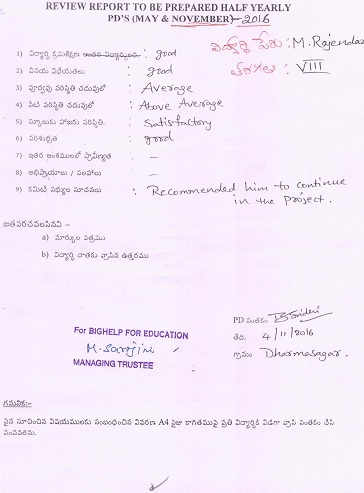 REVIEW REPORT TO BE PREPARED HALF YEARLY
PD'S (MAY & NOVEMBER)-2016
విద్యార్థి పేరు: M. Rajendar
తరగతి : VIII
1) విద్యార్థి క్రమశిక్షణ : good
2) వినయ విధేయతలు : good
3) పూర్వపు పరిస్థితి చదువులో : Average
4) నేటి పరిస్థితి చదువులో : Above Average
5) స్కూలుకు హాజరు పరిస్థితి. : Satisfactory
6) పరిశుభ్రత : good
7) ఇతర అంశములలో ప్రావీణ్యత : –
8) అభిప్రాయాలు / సలహాలు : –
9) కమిటీ సభ్యుల సూచనలు : Recommended him to continue
in the Project.
జతపరచవలసినవి –
a) మార్కుల పత్రము
b) విద్యార్థి చాతకు వ్రాసిన ఉత్తరము
PD సంతకం
For BIGHELP FOR EDUCATION
తేది. 4/11/2016
M. Sarojini
గ్రామం Dharmasagar.
MANAGING TRUSTEE
గమనిక:-
పైన సూచించిన విషయములకు సంబంధించిన వివరణ A4 సైజు కాగితముపై ప్రతి విద్యార్థికి విడిగా వ్రాసి సంతకం చేసి
పంపవలెను.